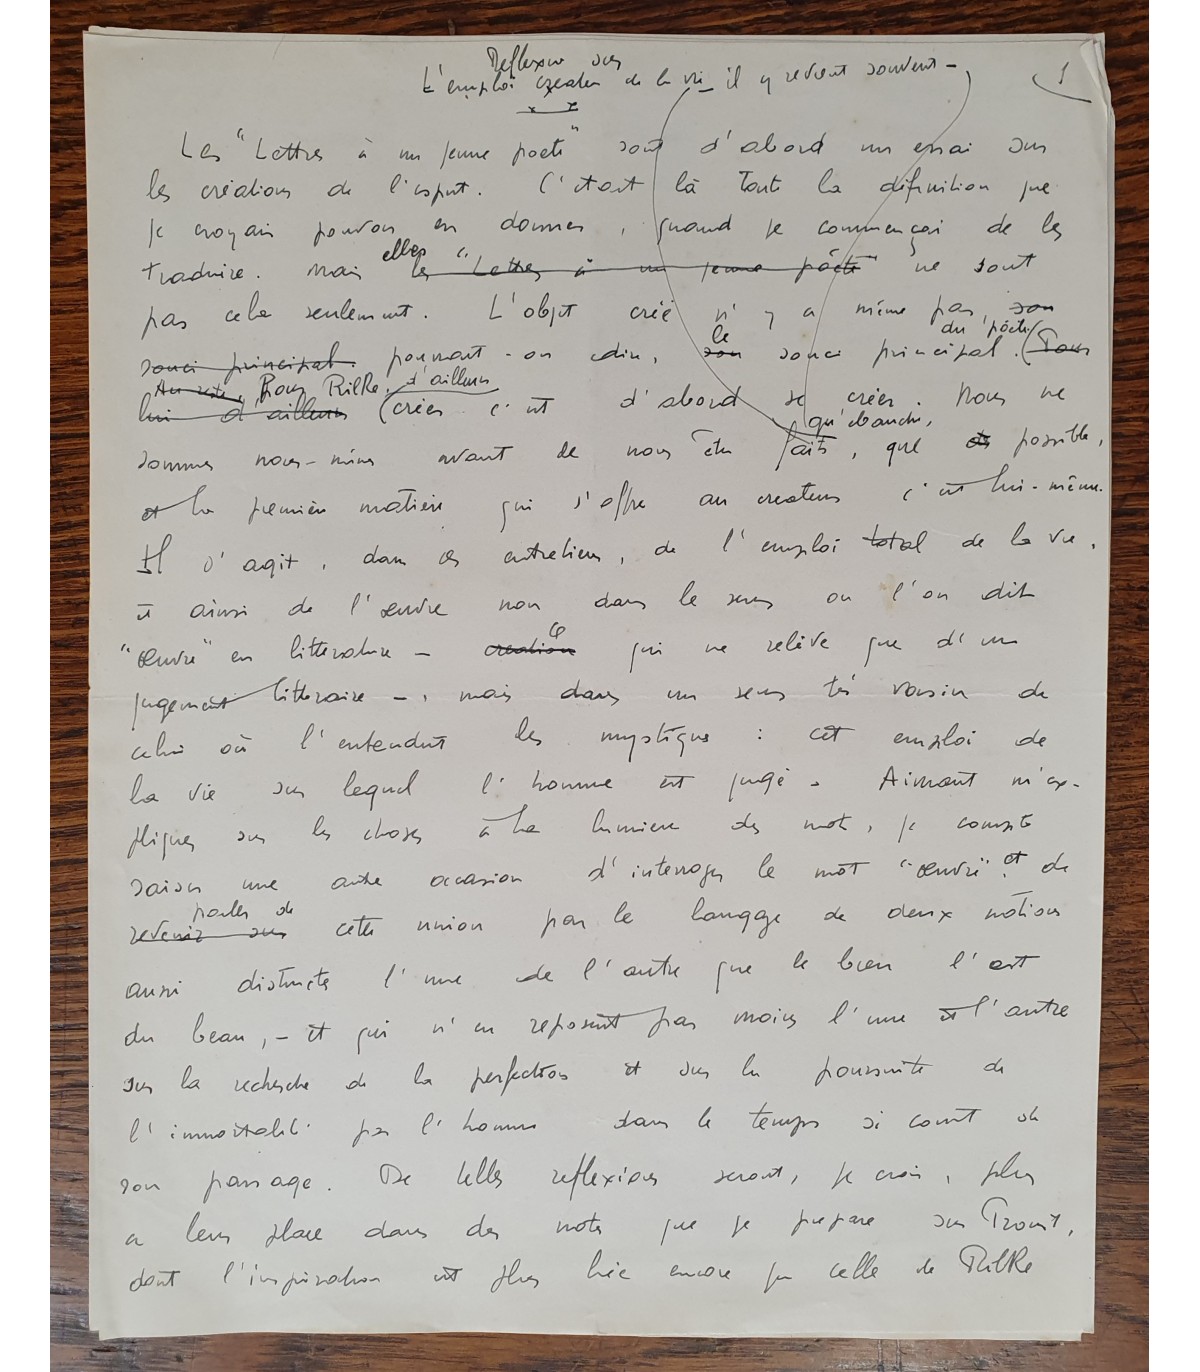 Réflexion sur
L'emploi créateur de la vie_ il y revient souvent -
1
Les "Lettres à un jeune poète" sont d'abord un essai sur
les créations de l'esprit. C'était là toute la définition que
je croyais pouvoir en donner, quand je commençai de les
elles
traduire. Mais les "Lettres à un jeune poète" ne sont
pas cela seulement. L'objet créé n'y a même pas, son
le du poète
souci principal. pourrait-on dire, son souci principal. (Pour
Au reste, Pour Rilke, d'ailleurs
lui d'ailleurs (créer c'est d'abord se créer. Nous ne
qu'ébauche,
sommes nous-mêmes avant de nous être faits, que des possible,
et la première matière qui s'offre au créateur c'est lui-même.
Il s'agit, dans ces entretiens, de l'emploi total de la vie,
et ainsi de l'œuvre non dans le sens où l'on dit
ce
"œuvre" en littérature - création qui ne relève que d'un
jugement littéraire -, mais dans un sens très voisin de
celui où l'entendent les mystiques : cet emploi de
la vie sur lequel l'homme est jugé. Aimant m'ex-
pliquer sur les choses à la lumière des mots, je compte
saisir une autre occasion d'interroger le mot "œuvre" et de
parler de
revenir sur cette union par le langage de deux notions
aussi distinctes l'une de l'autre que le bien l'est
du beau, - et qui n'en reposent pas moins l'une et l'autre
sur la recherche de la perfection et sur la poursuite de
l'immortalité par l'homme dans le temps si court de
son passage. De telles réflexions seront, je crois, plus
à leur place dans des notes que je prépare sur Proust,
dont l'inspiration est plus liée encore que celle de Rilke